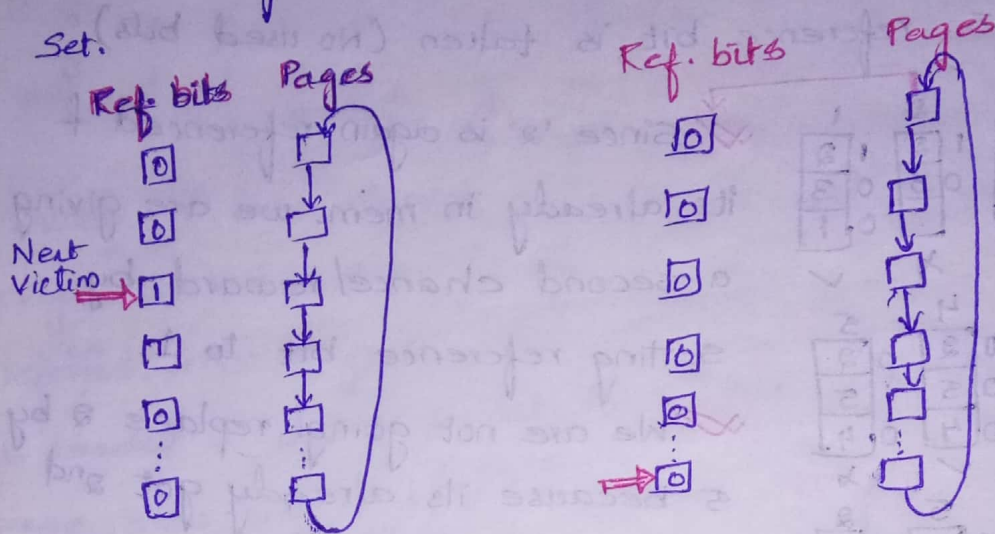 Set.
Ref. bits Pages
0
0
Next
Victim 1
1
0
0
Ref. bits Pages
0
0
0
0
0
0